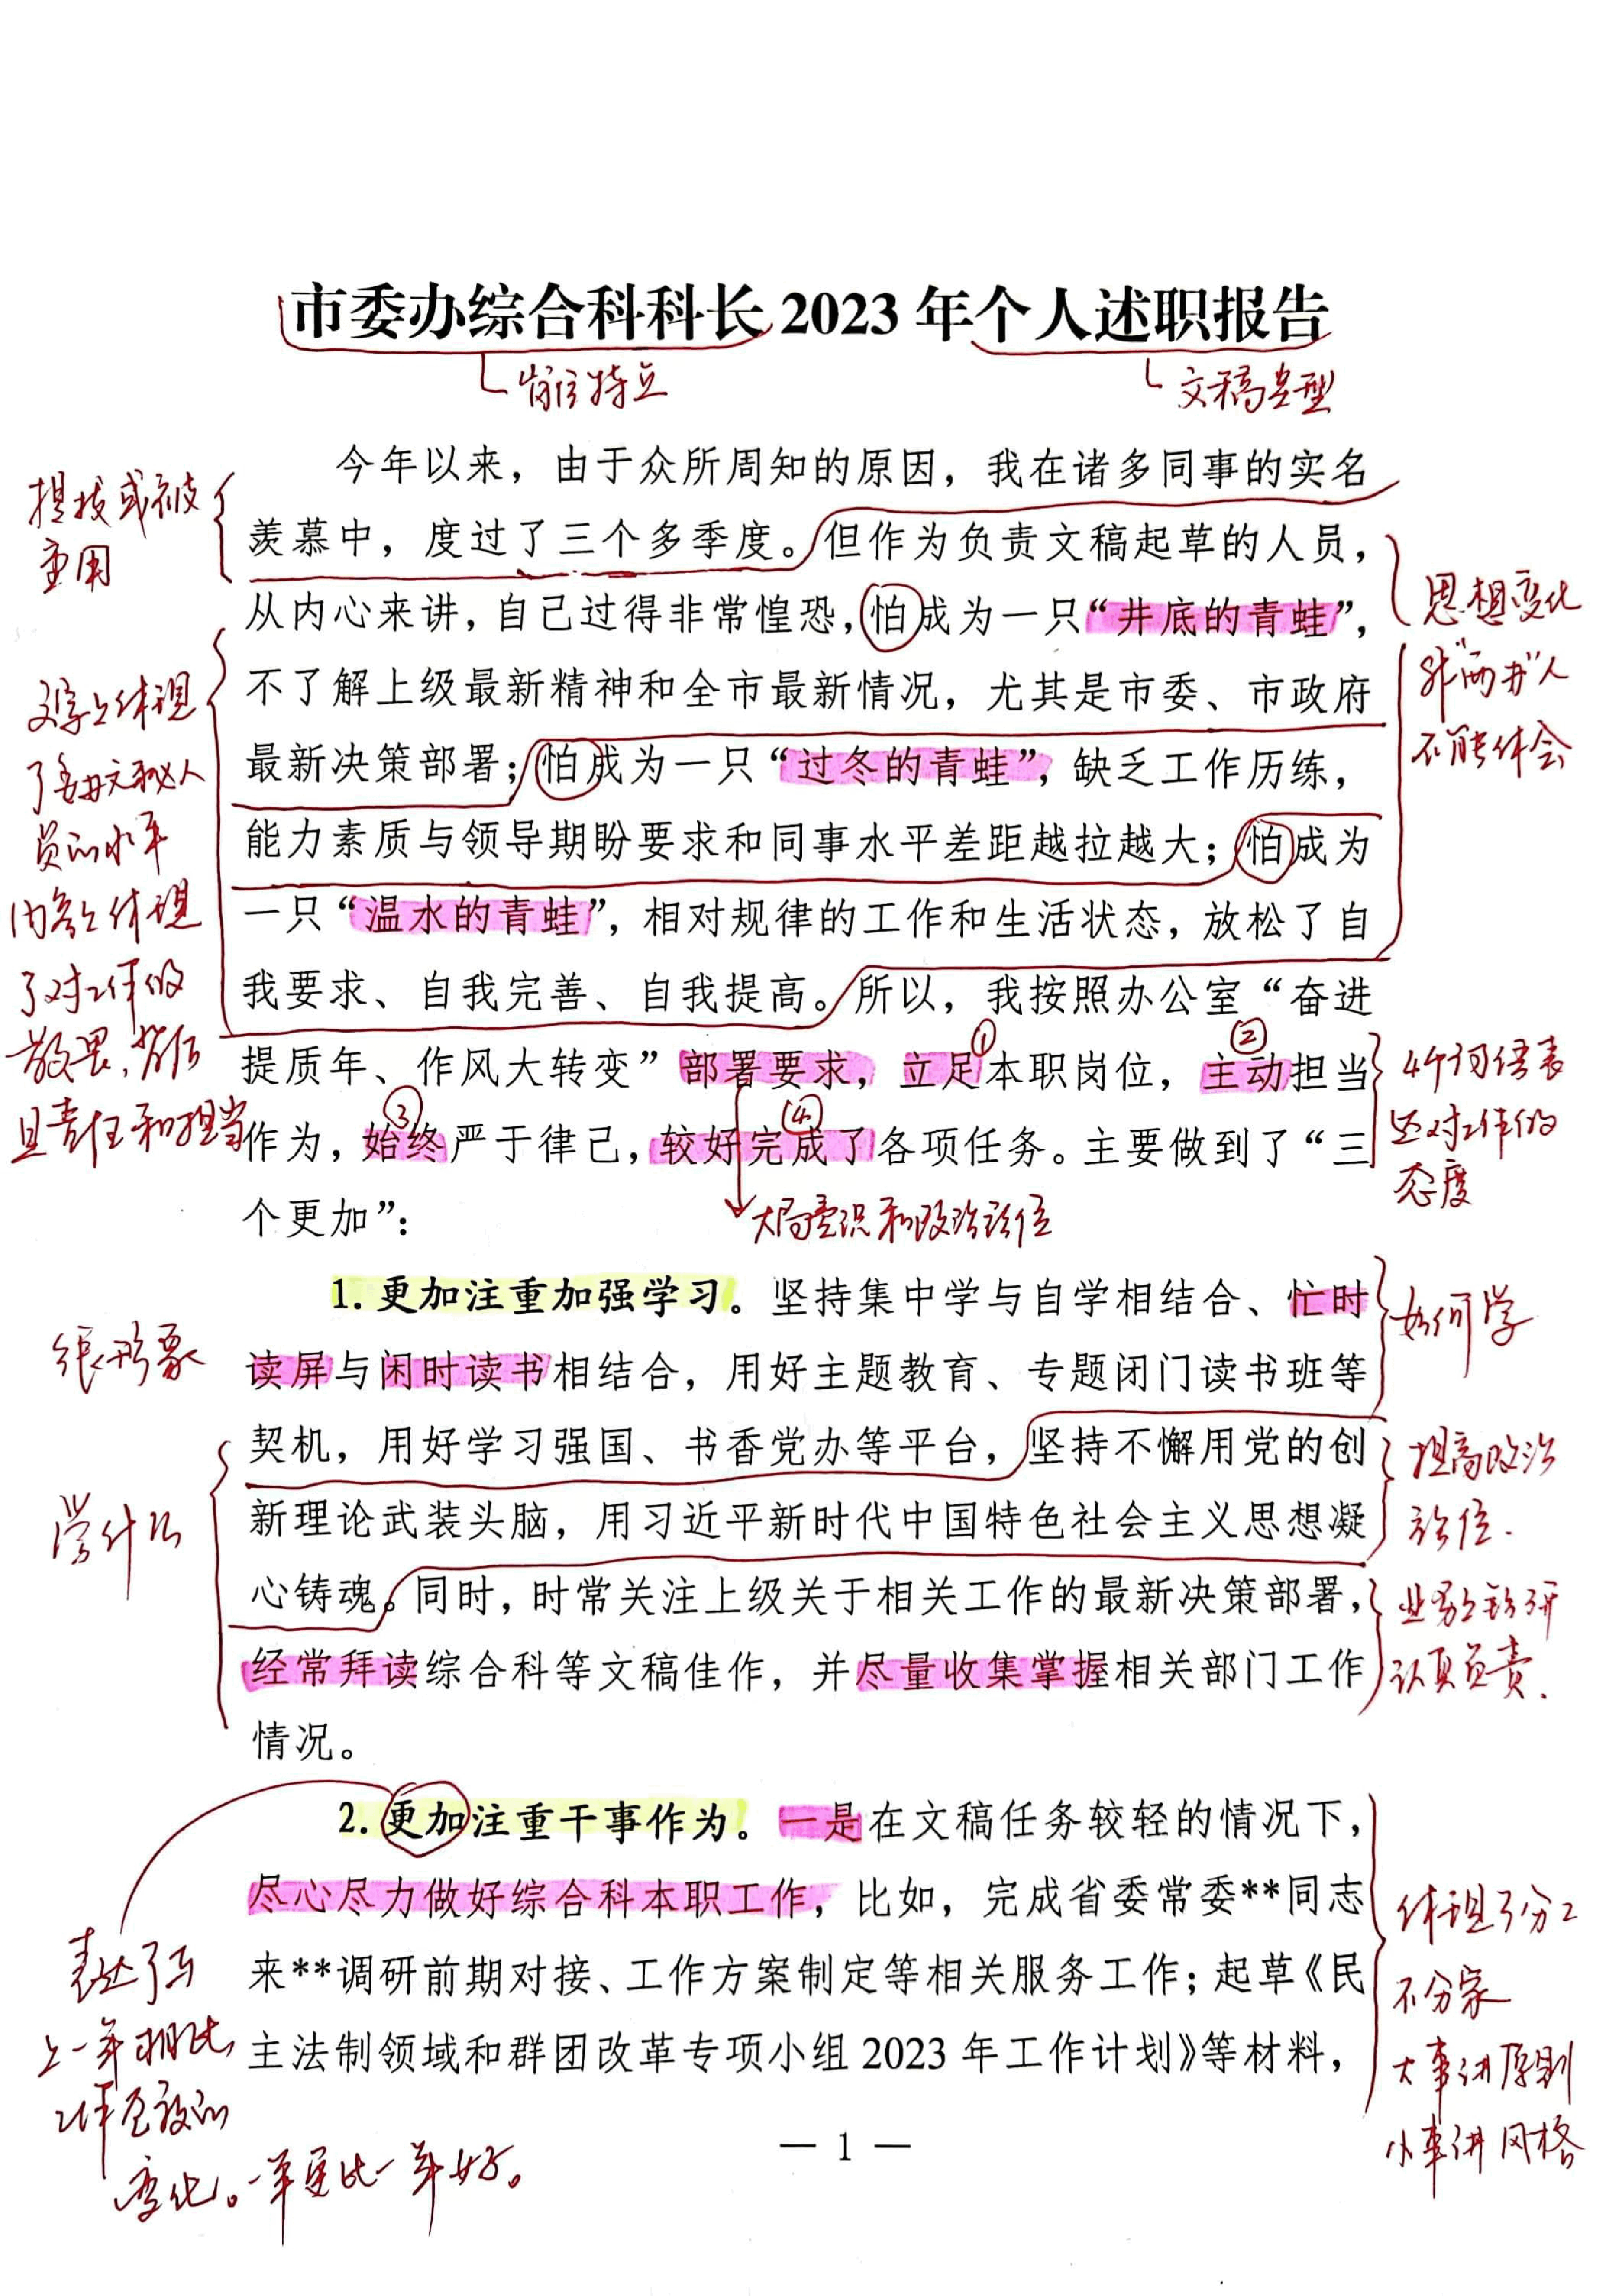 市委办综合科科长 2023 年个人述职报告
文稿类型
今年以来，由于众所周知的原因，我在诸多同事的实名
羡慕中，度过了三个多季度。但作为负责文稿起草的人员，
从内心来讲，自己过得非常惶恐，怕成为一只“井底的青蛙”，
不了解上级最新精神和全市最新情况，尤其是市委、市政府
最新决策部署；怕成为一只“过冬的青蛙”，缺乏工作历练，
能力素质与领导期盼要求和同事水平差距越拉越大；怕成为
一只“温水的青蛙”，相对规律的工作和生活状态，放松了自
我要求、自我完善、自我提高。所以，我按照办公室“奋进
提质年、作风大转变”部署要求，立足本职岗位，主动担当
作为，始终严于律己，较好完成了各项任务。主要做到了“三
个更加”：
① ②
③ ④
提拔或被
重用
文字上体现
了委办文秘人
员的水平
内容上体现
了对工作的
敬畏，背后
是责任和担当
思想变化
非“两办”人
不能体会
4个词语表
达对工作的
态度
大局意识和政治站位
1. 更加注重加强学习。坚持集中学与自学相结合、忙时
读屏与闲时读书相结合，用好主题教育、专题闭门读书班等
契机，用好学习强国、书香党办等平台，坚持不懈用党的创
新理论武装头脑，用习近平新时代中国特色社会主义思想凝
心铸魂。同时，时常关注上级关于相关工作的最新决策部署，
经常拜读综合科等文稿佳作，并尽量收集掌握相关部门工作
情况。
很形象
学什么
如何学
提高政治
站位.
业务上钻研
认真负责.
2. 更加注重干事作为。一是在文稿任务较轻的情况下，
尽心尽力做好综合科本职工作，比如，完成省委常委**同志
来**调研前期对接、工作方案制定等相关服务工作；起草《民
主法制领域和群团改革专项小组 2023 年工作计划》等材料，
表达了与
上一年相比
工作
变化。一年更比一年好。
体现了分工
不分家
大事讲原则
小事讲风格
— 1 —